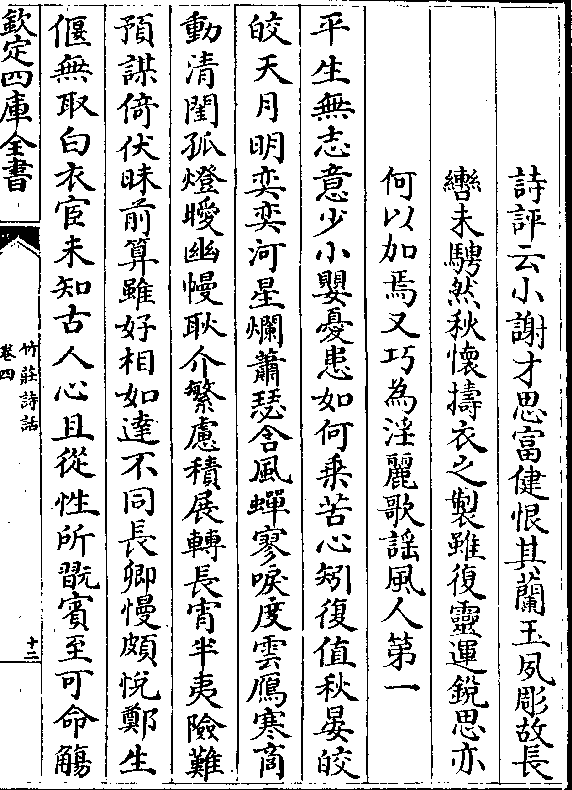 詩評云小謝才思富健恨其蘭玉夙彫故長
轡未騁然秋懷擣衣之製雖復靈運銳思亦
何以加焉又巧為淫麗歌謡風人第一
平生無志意少小嬰憂患如何乗苦心矧復值秋晏皎
皎天月明奕奕河星爛蕭瑟含風蟬寥唳度雲鴈寒商
動清閨孤燈曖幽幔耿介繁慮積展轉長宵半夷險難
預謀倚伏昧前算雖好相如達不同長卿慢頗悅鄭生
偃無取白衣宦未知古人心且從性所翫賓至可命觴
欽定四庫全書
竹莊詩話
卷四
十二